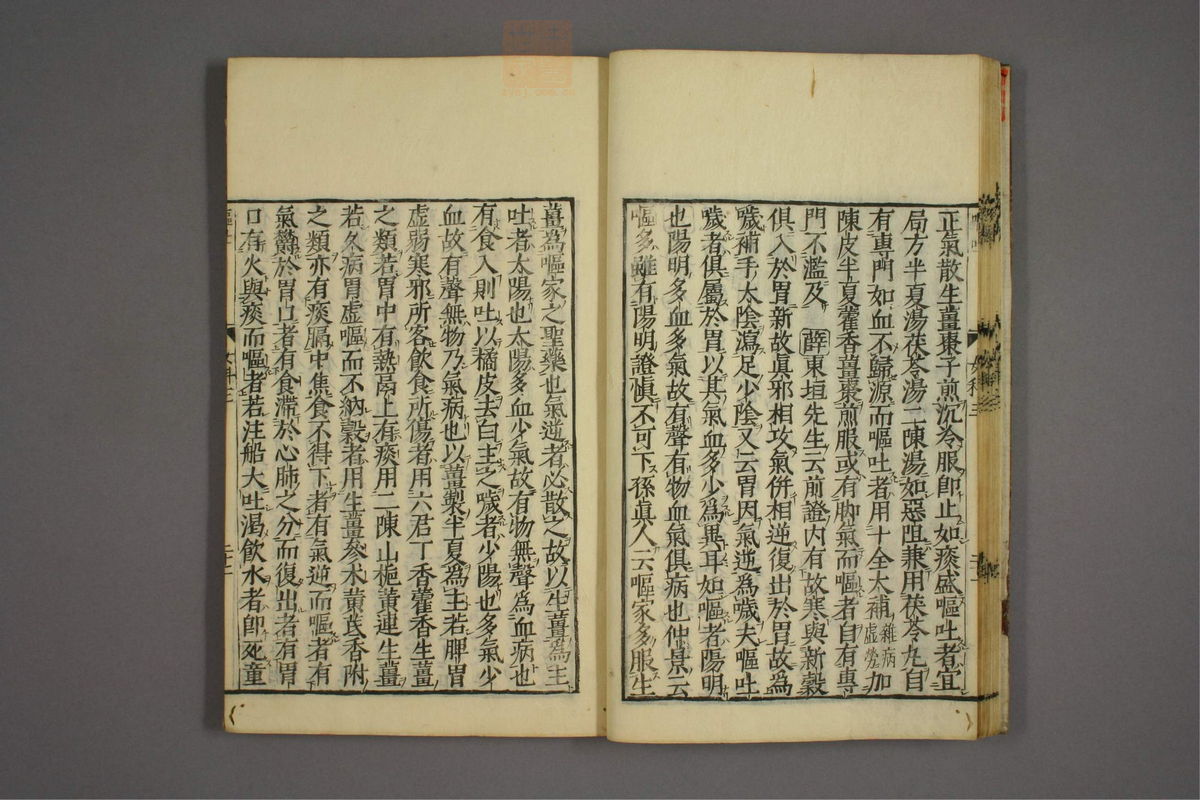 正氣散生薑棗子煎沉冷服卽止如痰盛嘔吐者宜
局方半夏湯茯苓湯二陳湯如惡阻兼用茯苓丸自
有専門如血不歸源而嘔吐者用十全大補雜病虛勞加
陳皮半夏藿香薑棗煎服或有脚氣而嘔者自有専
門不濫及薛東垣先生云前證内有故寒與新穀
俱入於胃新故眞邪相攻氣併相逆復出於胃故爲
噦補手太陰瀉足少陰又云胃因氣逆爲噦夫嘔吐
噦者俱屬於胃以其氣血多少爲異耳如嘔者陽明
也陽明多血多氣故有聲有物血氣俱病也仲景云
嘔多雖有陽明證愼不可下孫眞人云嘔家多服生
薑爲嘔家之聖藥也氣逆者必散之故以生薑爲主
吐者太陽也太陽多血少氣故有物無聲爲血病也
有食入則吐以橘皮去白主之噦者少陽也多氣少
血故有聲無物乃氣病也以薑製半夏爲主若脾胃
虛弱寒邪所客飮食所傷者用六君丁香藿香生薑
之類若胃中有熱膈上有痰用二陳山梔黃連生薑
若久病胃虛嘔而不納穀者用生薑參朮黃芪香附
之類亦有痰膈中焦食不得下者有氣逆而嘔者有
氣鬱於胃口者有食滯於心肺之分而復出者有胃
口有火與痰而嘔者若注船大吐渴飮水者卽死童